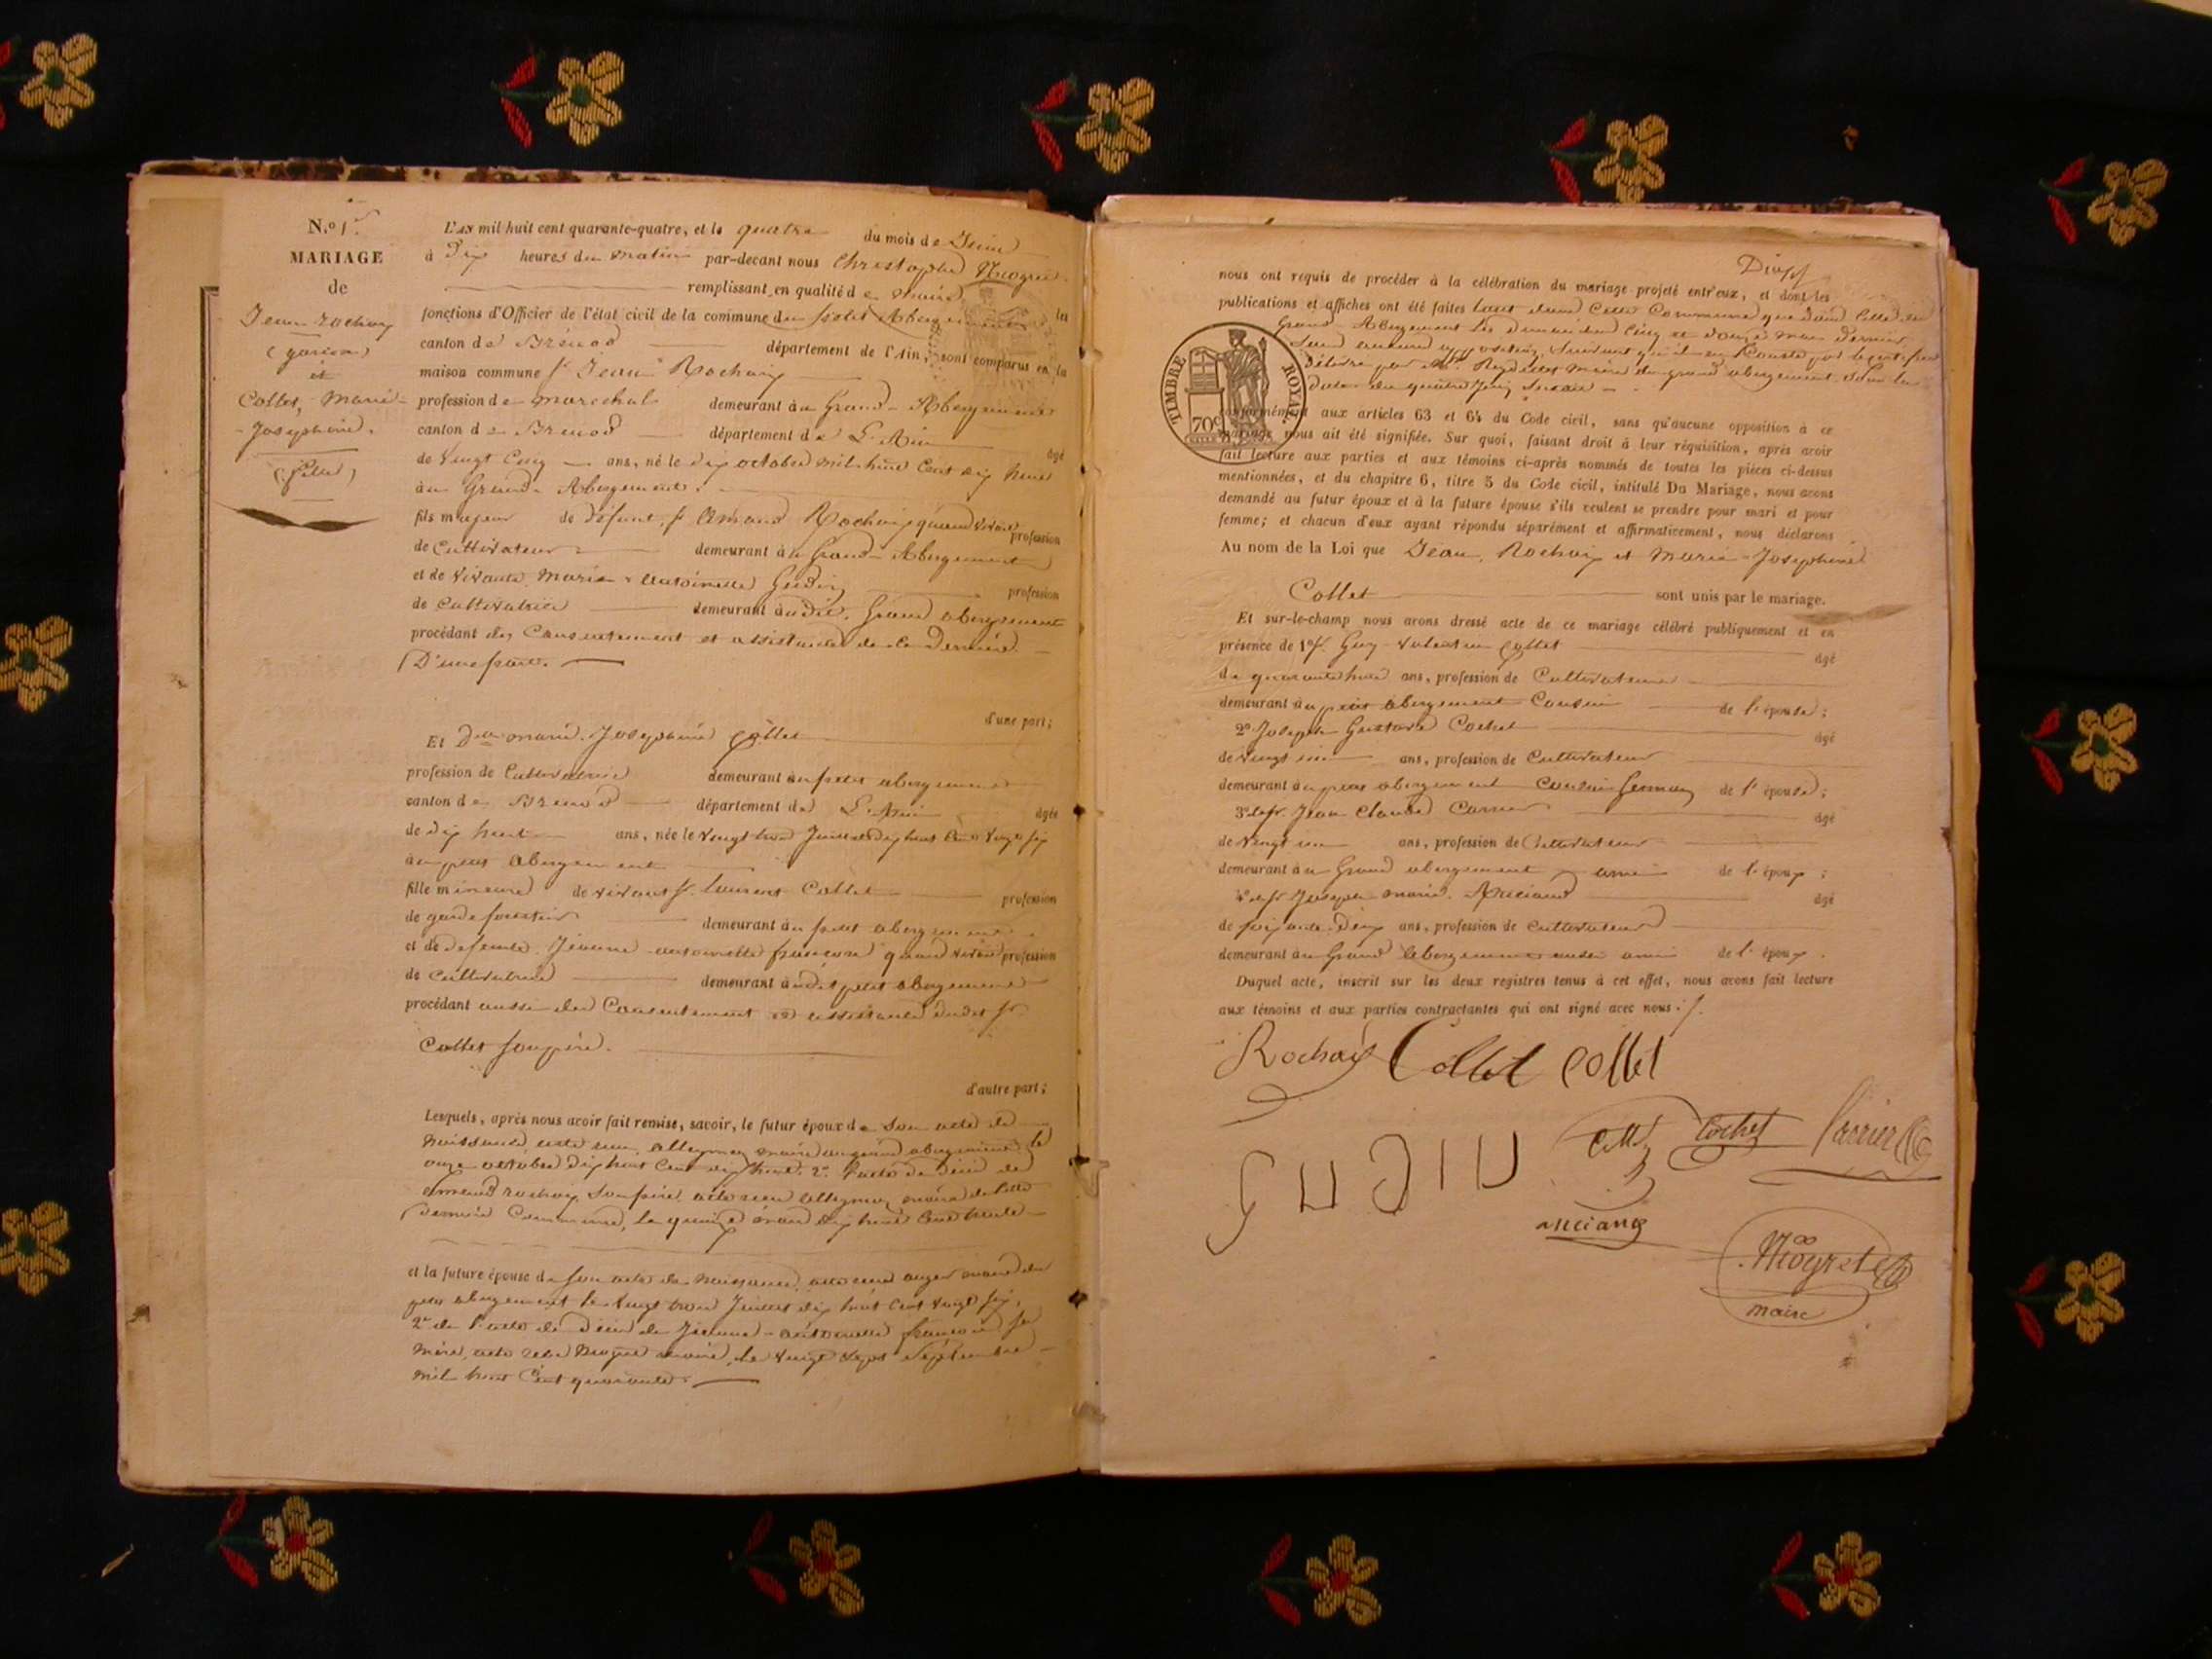 N.º 1.er
MARIAGE
de
Jean Rochaix
(garçon)
et
Collet, Marie-
Josephine.
(fille)
L'AN mil huit cent quarante-quatre, et le quatre du mois de Juin
à Dix heures du matin par-devant nous Christophe
remplissant en qualité de Maire les
fonctions d'Officier de l'état civil de la commune du petit Abergement
canton de Brénod département de l'Ain, sont comparus en la
maison commune Sr Jean Rochaix
profession de marechal demeurant au Grand-Abergement
canton de Brénod département de L'Ain âgé
de vingt Cinq ans, né le dix octobre mil huit Cent dix huit
au Grand-Abergement.
fils majeur de défunt Sr Amand Rochaix quand vivait profession
de Cultivateur demeurant au Grand-Abergement
et de vivante Marie Antoinette Gudin profession
de Cultivatrice demeurant au dit Grand abergement
procédant du Consentement et assistance de la Dernière
D'une part.
d'une part;
Et Dlle marie Josephine Collet
profession de Cultivatrice demeurant au petit abergement
canton de Brénod département de L'Ain âgée
de dix huit ans, née le vingt trois Juillet dix huit Cent vingt six
au petit Abergement
fille mineure de vivant Sr Laurent Collet profession
de garde forestier demeurant au petit abergement
et de defunte Jeanne antoinette françoise quand vivait profession
de Cultivatrice demeurant audit petit abergement
procédant aussi du Consentement et assistance dudit Sr
Collet son père.
d'autre part;
Lesquels, après nous avoir fait remise, savoir, le futur époux de son acte de
naissance maire du grand abergement le
onze octobre dix huit Cent dix huit. 2º l'acte de décès de
amand rochaix son père maire de cette
dernière Commune, le quinze dix huit Cent trente
et la future épouse de son acte de naissance, maire du
petit abergement le vingt trois Juillet dix huit Cent vingt six,
2º de l'acte de décès de Jeanne-antoinette françoise sa
mère, maire, le vingt sept Septembre
mil huit Cent quarante.
nous ont requis de procéder à la célébration du mariage projeté entr'eux, et dont les
publications et affiches ont été faites tant dans Cette Commune que dans Celle du
Grand Abergement les dimanches Cinq et douze mai dernier
sans aucune opposition, suivant qu'il en Conste par le certificat
délivré par Mr maire du grand abergement sous la
date du quatre Juin
TIMBRE ROYAL
70c
conformément aux articles 63 et 64 du Code civil, sans qu'aucune opposition à ce
mariage nous ait été signifiée. Sur quoi, faisant droit à leur réquisition, après avoir
fait lecture aux parties et aux témoins ci-après nommés de toutes les pièces ci-dessus
mentionnées, et du chapitre 6, titre 5 du Code civil, intitulé Du Mariage, nous avons
demandé au futur époux et à la future épouse s'ils veulent se prendre pour mari et pour
femme; et chacun d'eux ayant répondu séparément et affirmativement, nous déclarons
Au nom de la Loi que Jean Rochaix et Marie-Josephine
Collet sont unis par le mariage.
Et sur-le-champ nous avons dressé acte de ce mariage célébré publiquement et en
présence de 1º Sr Guy Valentin Collet âgé
de quarante huit ans, profession de Cultivateur
demeurant au petit abergement Cousin de l'épouse;
2º Joseph Gustave Cochet âgé
de vingt un ans, profession de Cultivateur
demeurant au petit abergement Cousin Germain de l'épouse;
3º le Sr Jean Claude Carrier âgé
de vingt un ans, profession de Cultivateur
demeurant au Grand abergement ami de l'époux;
4º le Sr Joseph marie Anciand âgé
de soixante-Dix ans, profession de Cultivateur
demeurant au Grand abergement aussi ami de l'époux.
Duquel acte, inscrit sur les deux registres tenus à cet effet, nous avons fait lecture
aux témoins et aux parties contractantes qui ont signé avec nous.
Rochaix Collet Collet
GUDIN Collet Cochet Carrier
anciand
Niogret
maire